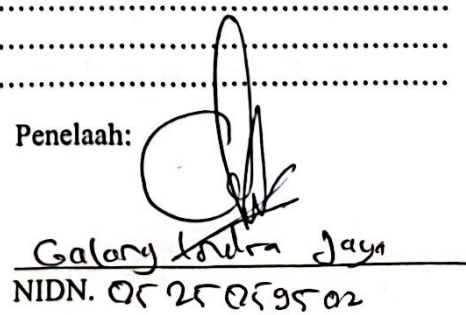 Penelaah:
Galang Indra Jaya
NIDN. 0525059502